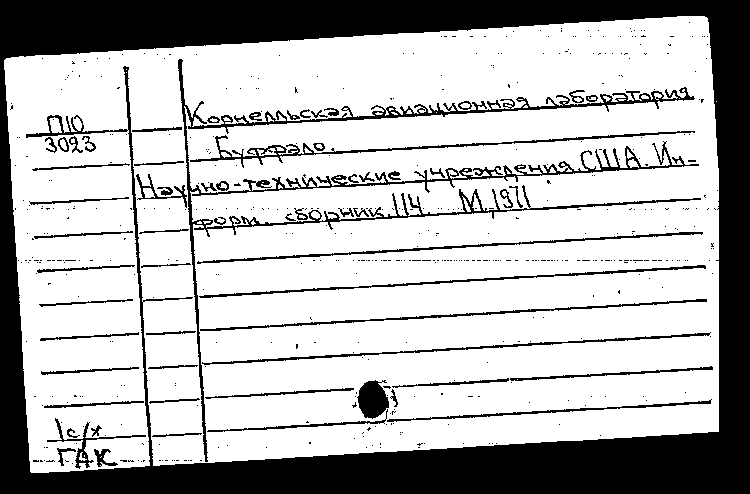 Корнелльская авиационная лаборатория.
П10
3023
Буффало.
Научно-технические учреждения США. Ин-
форм. сборник 114. М, 1971
1 с/х
ГАК